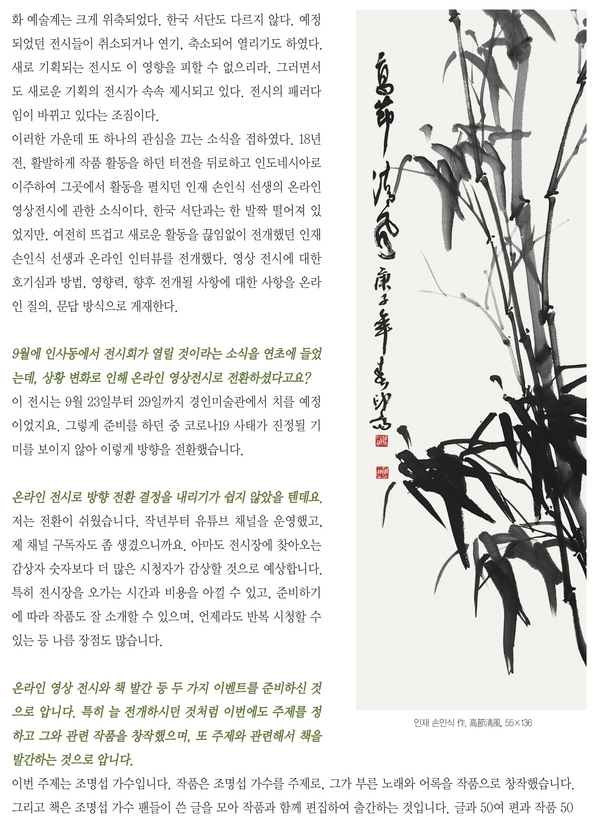 화 예술계는 크게 위축되었다. 한국 서단도 다르지 않다. 예정
되었던 전시들이 취소되거나 연기, 축소되어 열리기도 하였다.
새로 기획되는 전시도 이 영향을 피할 수 없으리라. 그러면서
도 새로운 기획의 전시가 속속 제시되고 있다. 전시의 패러다
임이 바뀌고 있다는 조짐이다.
이러한 가운데 또 하나의 관심을 끄는 소식을 접하였다. 18년
전, 활발하게 작품 활동을 하던 터전을 뒤로하고 인도네시아로
이주하여 그곳에서 활동을 펼치던 인재 손인식 선생의 온라인
영상전시에 관한 소식이다. 한국 서단과는 한 발짝 떨어져 있
었지만, 여전히 뜨겁고 새로운 활동을 끊임없이 전개했던 인재
손인식 선생과 온라인 인터뷰를 전개했다. 영상 전시에 대한
호기심과 방법, 영향력, 향후 전개될 사항에 대한 사항을 온라
인 질의, 문답 방식으로 게재한다.
9월에 인사동에서 전시회가 열릴 것이라는 소식을 연초에 들었
는데, 상황 변화로 인해 온라인 영상전시로 전환하셨다고요?
이 전시는 9월 23일부터 29일까지 경인미술관에서 치를 예정
이었지요. 그렇게 준비를 하던 중 코로나19 사태가 진정될 기
미를 보이지 않아 이렇게 방향을 전환했습니다.
온라인 전시로 방향 전환 결정을 내리기가 쉽지 않았을 텐데요.
저는 전환이 쉬웠습니다. 작년부터 유튜브 채널을 운영했고,
제 채널 구독자도 좀 생겼으니까요. 아마도 전시장에 찾아오는
감상자 숫자보다 더 많은 시청자가 감상할 것으로 예상합니다.
특히 전시장을 오가는 시간과 비용을 아낄 수 있고, 준비하기
에 따라 작품도 잘 소개할 수 있으며, 언제라도 반복 시청할 수
있는 등 나름 장점도 많습니다.
온라인 영상 전시와 책 발간 등 두 가지 이벤트를 준비하신 것
으로 압니다. 특히 늘 전개하시던 것처럼 이번에도 주제를 정
하고 그와 관련 작품을 창작했으며, 또 주제와 관련해서 책을
발간하는 것으로 압니다.
이번 주제는 조명섭 가수입니다. 작품은 조명섭 가수를 주제로, 그가 부른 노래와 어록을 작품으로 창작했습니다.
그리고 책은 조명섭 가수 팬들이 쓴 글을 모아 작품과 함께 편집하여 출간하는 것입니다. 글과 50여 편과 작품 50
高節淸風
庚子年
인재 손인식 作, 高節淸風, 55×136